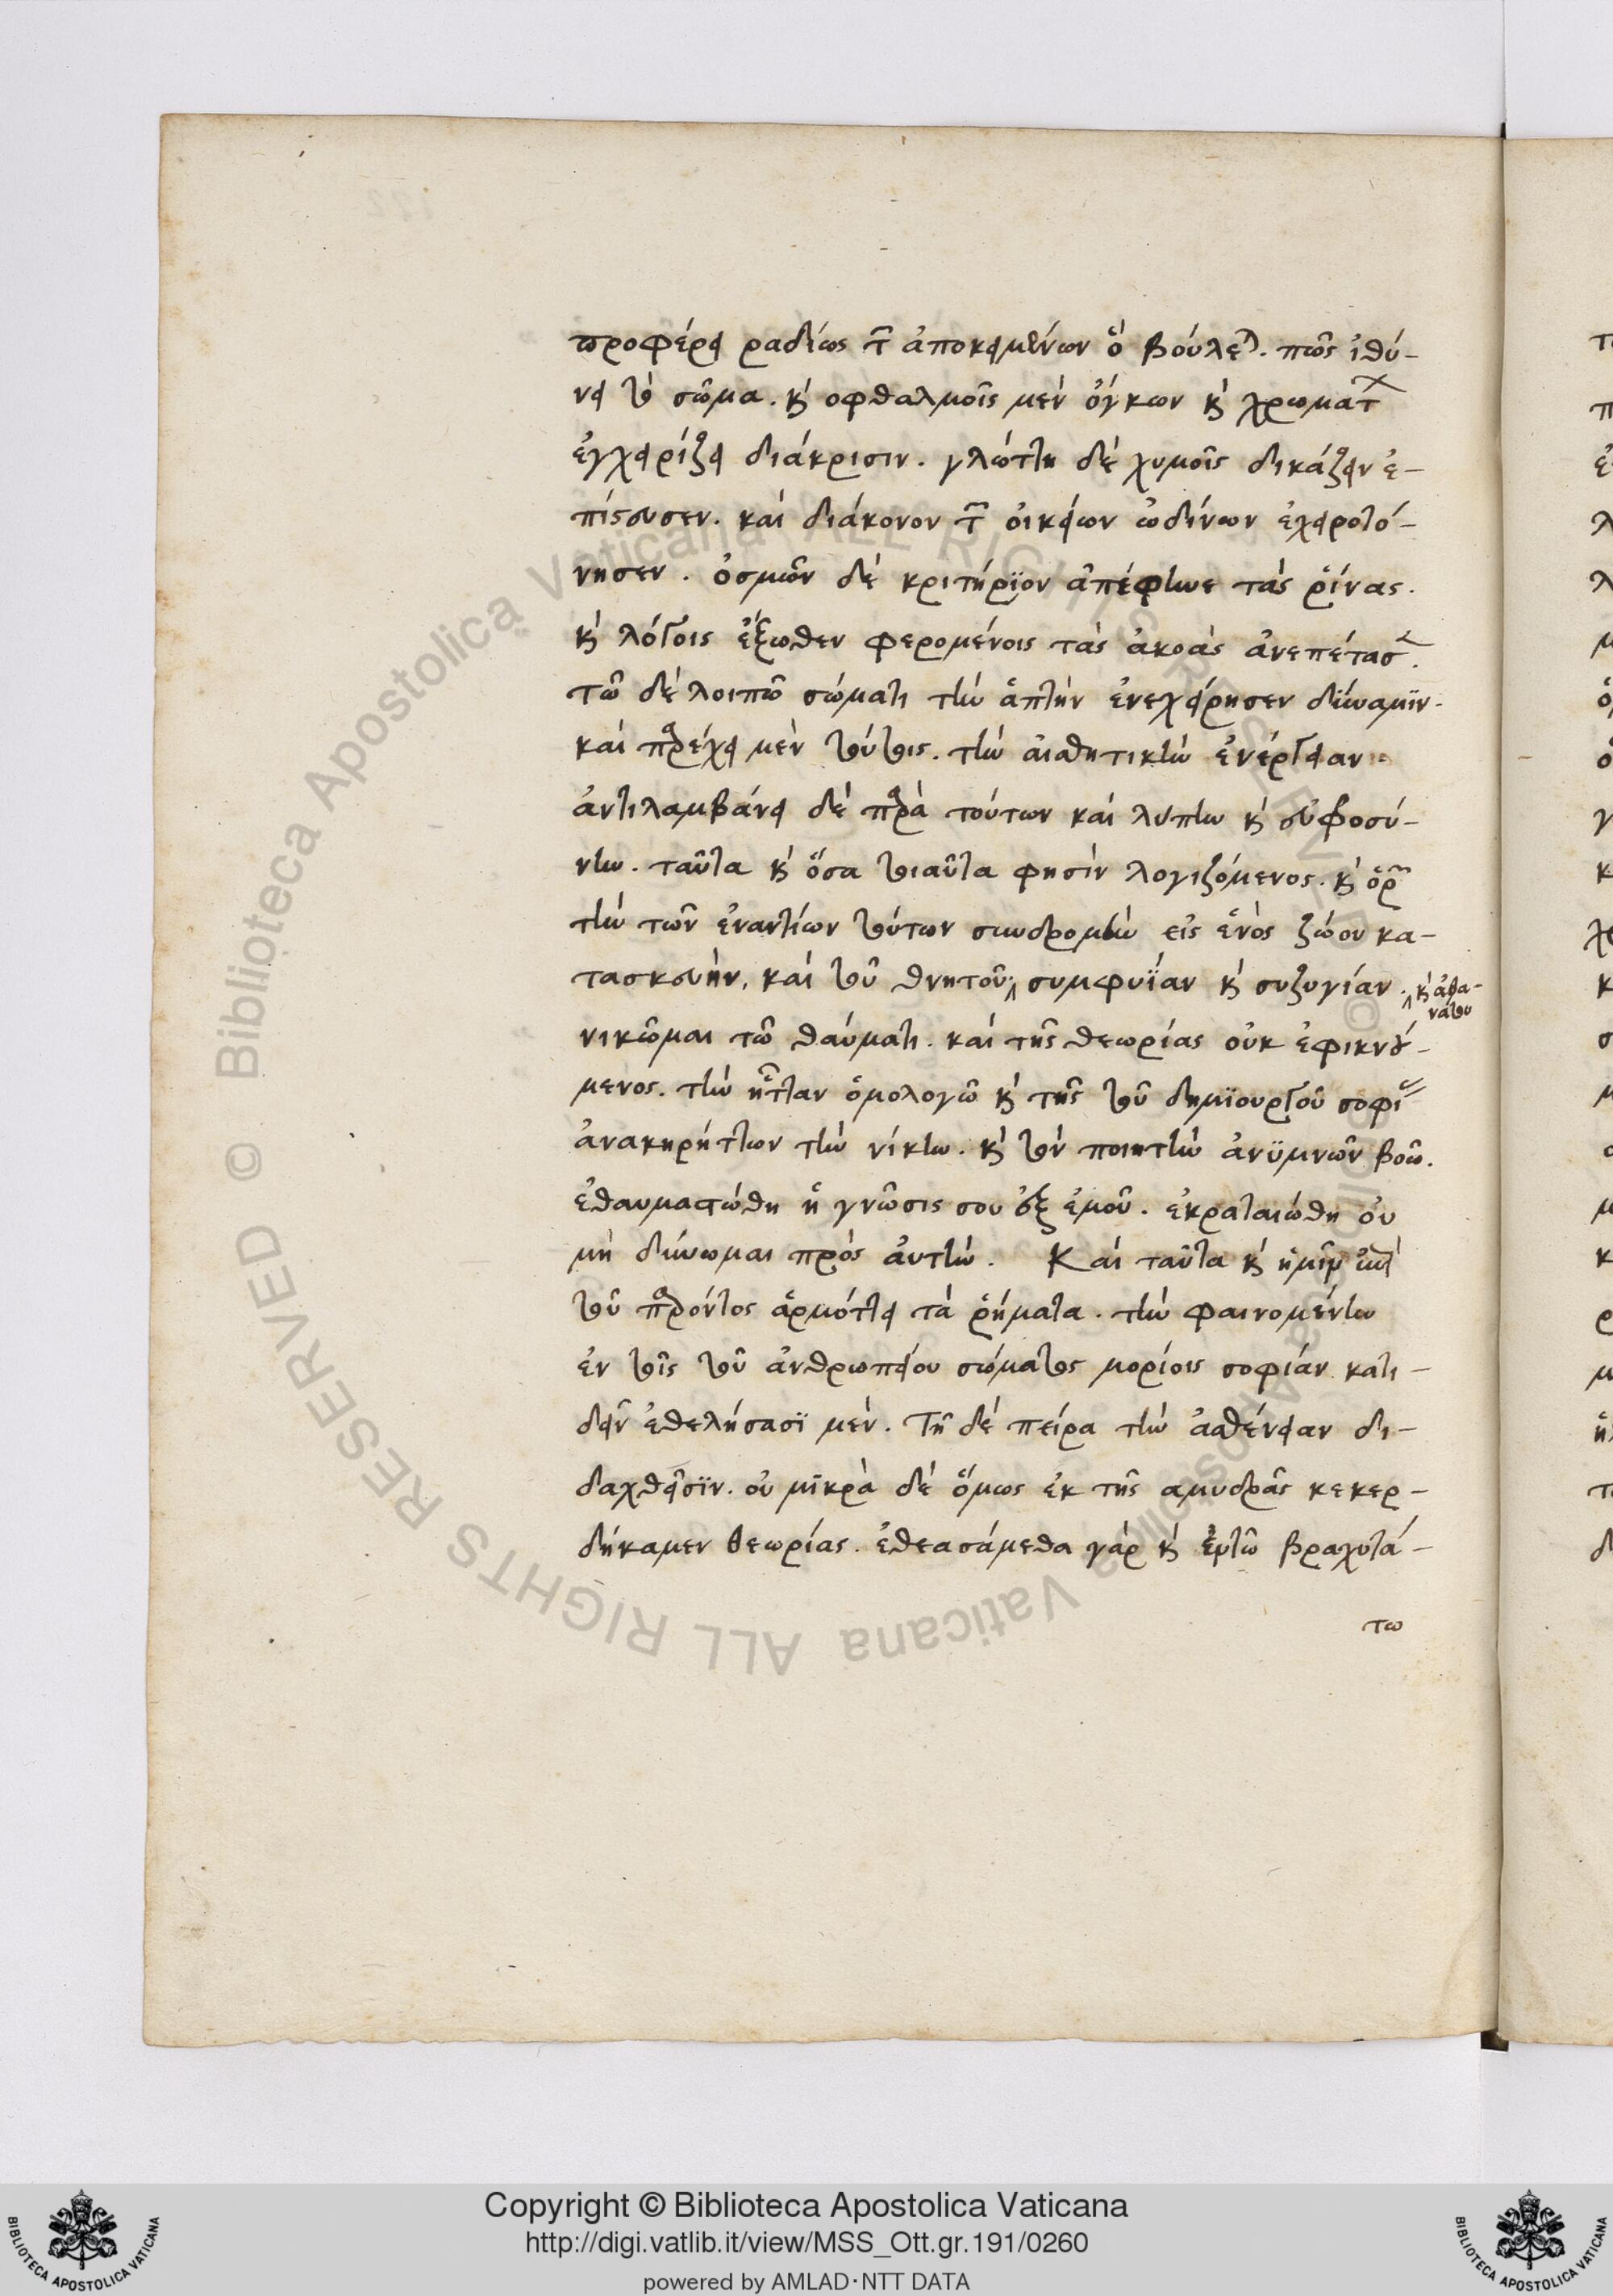 προφέρει ραδίως τῶν ἀποκειμένων ὃ βούλεται. πῶς ἰθύ-
νει τὸ σῶμα. καὶ οφθαλμοῖς μὲν ὄγκων καὶ χρωμάτων
ἐγχειρίζει διάκρισιν. γλώττη δὲ χυμοῖς δικάζειν ἐ-
πίστευσεν. καὶ διάκονον τῶν οἰκείων ὠδίνων ἐχειροτό-
νησεν. ὀσμῶν δὲ κριτήριον ἀπέφηνε τὰς ῥίνας.
καὶ λόγοις ἔξωθεν φερομένοις τὰς ἀκοὰς ἀνεπέτασε.
τῶ δὲ λοιπῶ σώματι τὴν ἁπτὴν ἐνεχείρησεν δύναμιν.
καὶ παρέχει μὲν τούτοις. τὴν αἰσθητικὴν ἐνέργειαν
ἀντιλαμβάνει δὲ παρὰ τούτων καὶ λύπην καὶ εὐφροσύ-
νην. ταῦτα καὶ ὅσα τοιαῦτα φησὶν λογιζόμενος. καὶ ὁρῶν
τὴν τῶν ἐναντίων τούτων συνδρομὴν εἰς ἑνὸς ζώου κα-
τασκευὴν, καὶ τοῦ θνητοῦ συμφυΐαν καὶ συζυγίαν.
καὶ ἀθα-
νάτου
νικῶμαι τῶ θαύματι. καὶ τῆς θεωρίας οὐκ ἐφικνού-
μενος. τὴν ἧτταν ὁμολογῶ καὶ τῆς τοῦ δημιουργοῦ σοφίας
ἀνακηρήττων τὴν νίκην. καὶ τὸν ποιητὴν ἀνυμνῶν βοῶ.
ἐθαυμαστώθη ἡ γνῶσις σου ἐξ ἐμοῦ. ἐκραταιώθη οὐ
μὴ δύνωμαι πρὸς αὐτήν. Καὶ ταῦτα καὶ ἡμῖν ἐπὶ
τοῦ παρόντος ἁρμόττει τὰ ῥήματα. τὴν φαινομένην
ἐν τοῖς τοῦ ἀνθρωπείου σώματος μορίοις σοφίαν κατι-
δεῖν ἐθελήσασι μὲν. Τῆ δὲ πείρα τὴν ἀσθένειαν δι-
δαχθεῖσιν. οὐ μικρὰ δὲ ὅμως ἐκ τῆς αμυδρᾶς κεκερ-
δήκαμεν θεωρίας. ἐθεασάμεθα γὰρ καὶ ἐν τῶ βραχυτά-
τω
Copyright © Biblioteca Apostolica Vaticana
http://digi.vatlib.it/view/MSS_Ott.gr.191/0260
powered by AMLAD·NTT DATA
BIBLIOTECA APOSTOLICA VATICANA
BIBLIOTECA APOSTOLICA VATICANA
© Biblioteca Apostolica Vaticana ALL RIGHTS RESERVED
© Biblioteca Apostolica Vaticana ALL RIGHTS RESERVED